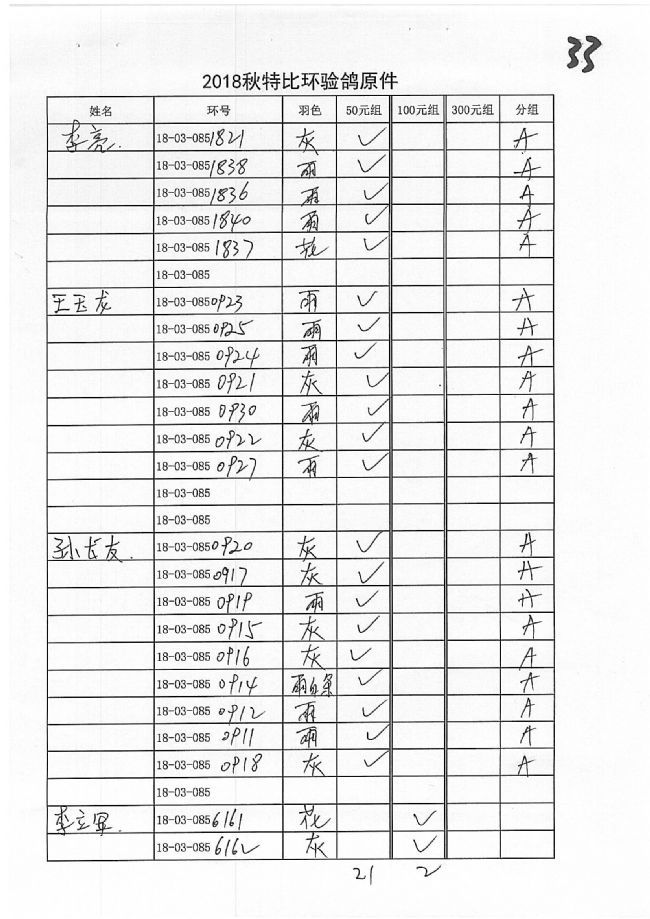 33
2018秋特比环验鸽原件
姓名 环号 羽色 50元组 100元组 300元组 分组
李亮. 18-03-0851821 灰 ✓ A
18-03-0851838 雨 ✓ A
18-03-0851836 雨 ✓ A
18-03-0851840 雨 ✓ A
18-03-0851837 ✓ A
18-03-085
王玉龙 18-03-0850923 雨 ✓ A
18-03-0850925 雨 ✓ A
18-03-0850924 雨 ✓ A
18-03-0850921 灰 ✓ A
18-03-0850930 雨 ✓ A
18-03-0850922 灰 ✓ A
18-03-0850927 雨 ✓ A
18-03-085
18-03-085
孙长友. 18-03-0850920 灰 ✓ A
18-03-0850917 灰 ✓ A
18-03-0850919 雨 ✓ A
18-03-0850915 灰 ✓ A
18-03-0850916 灰 ✓ A
18-03-0850914 雨白条 ✓ A
18-03-0850912 雨 ✓ A
18-03-0850911 雨 ✓ A
18-03-0850918 灰 ✓ A
18-03-085
李立军. 18-03-0856161 花 ✓
18-03-0856162 灰 ✓
21 2